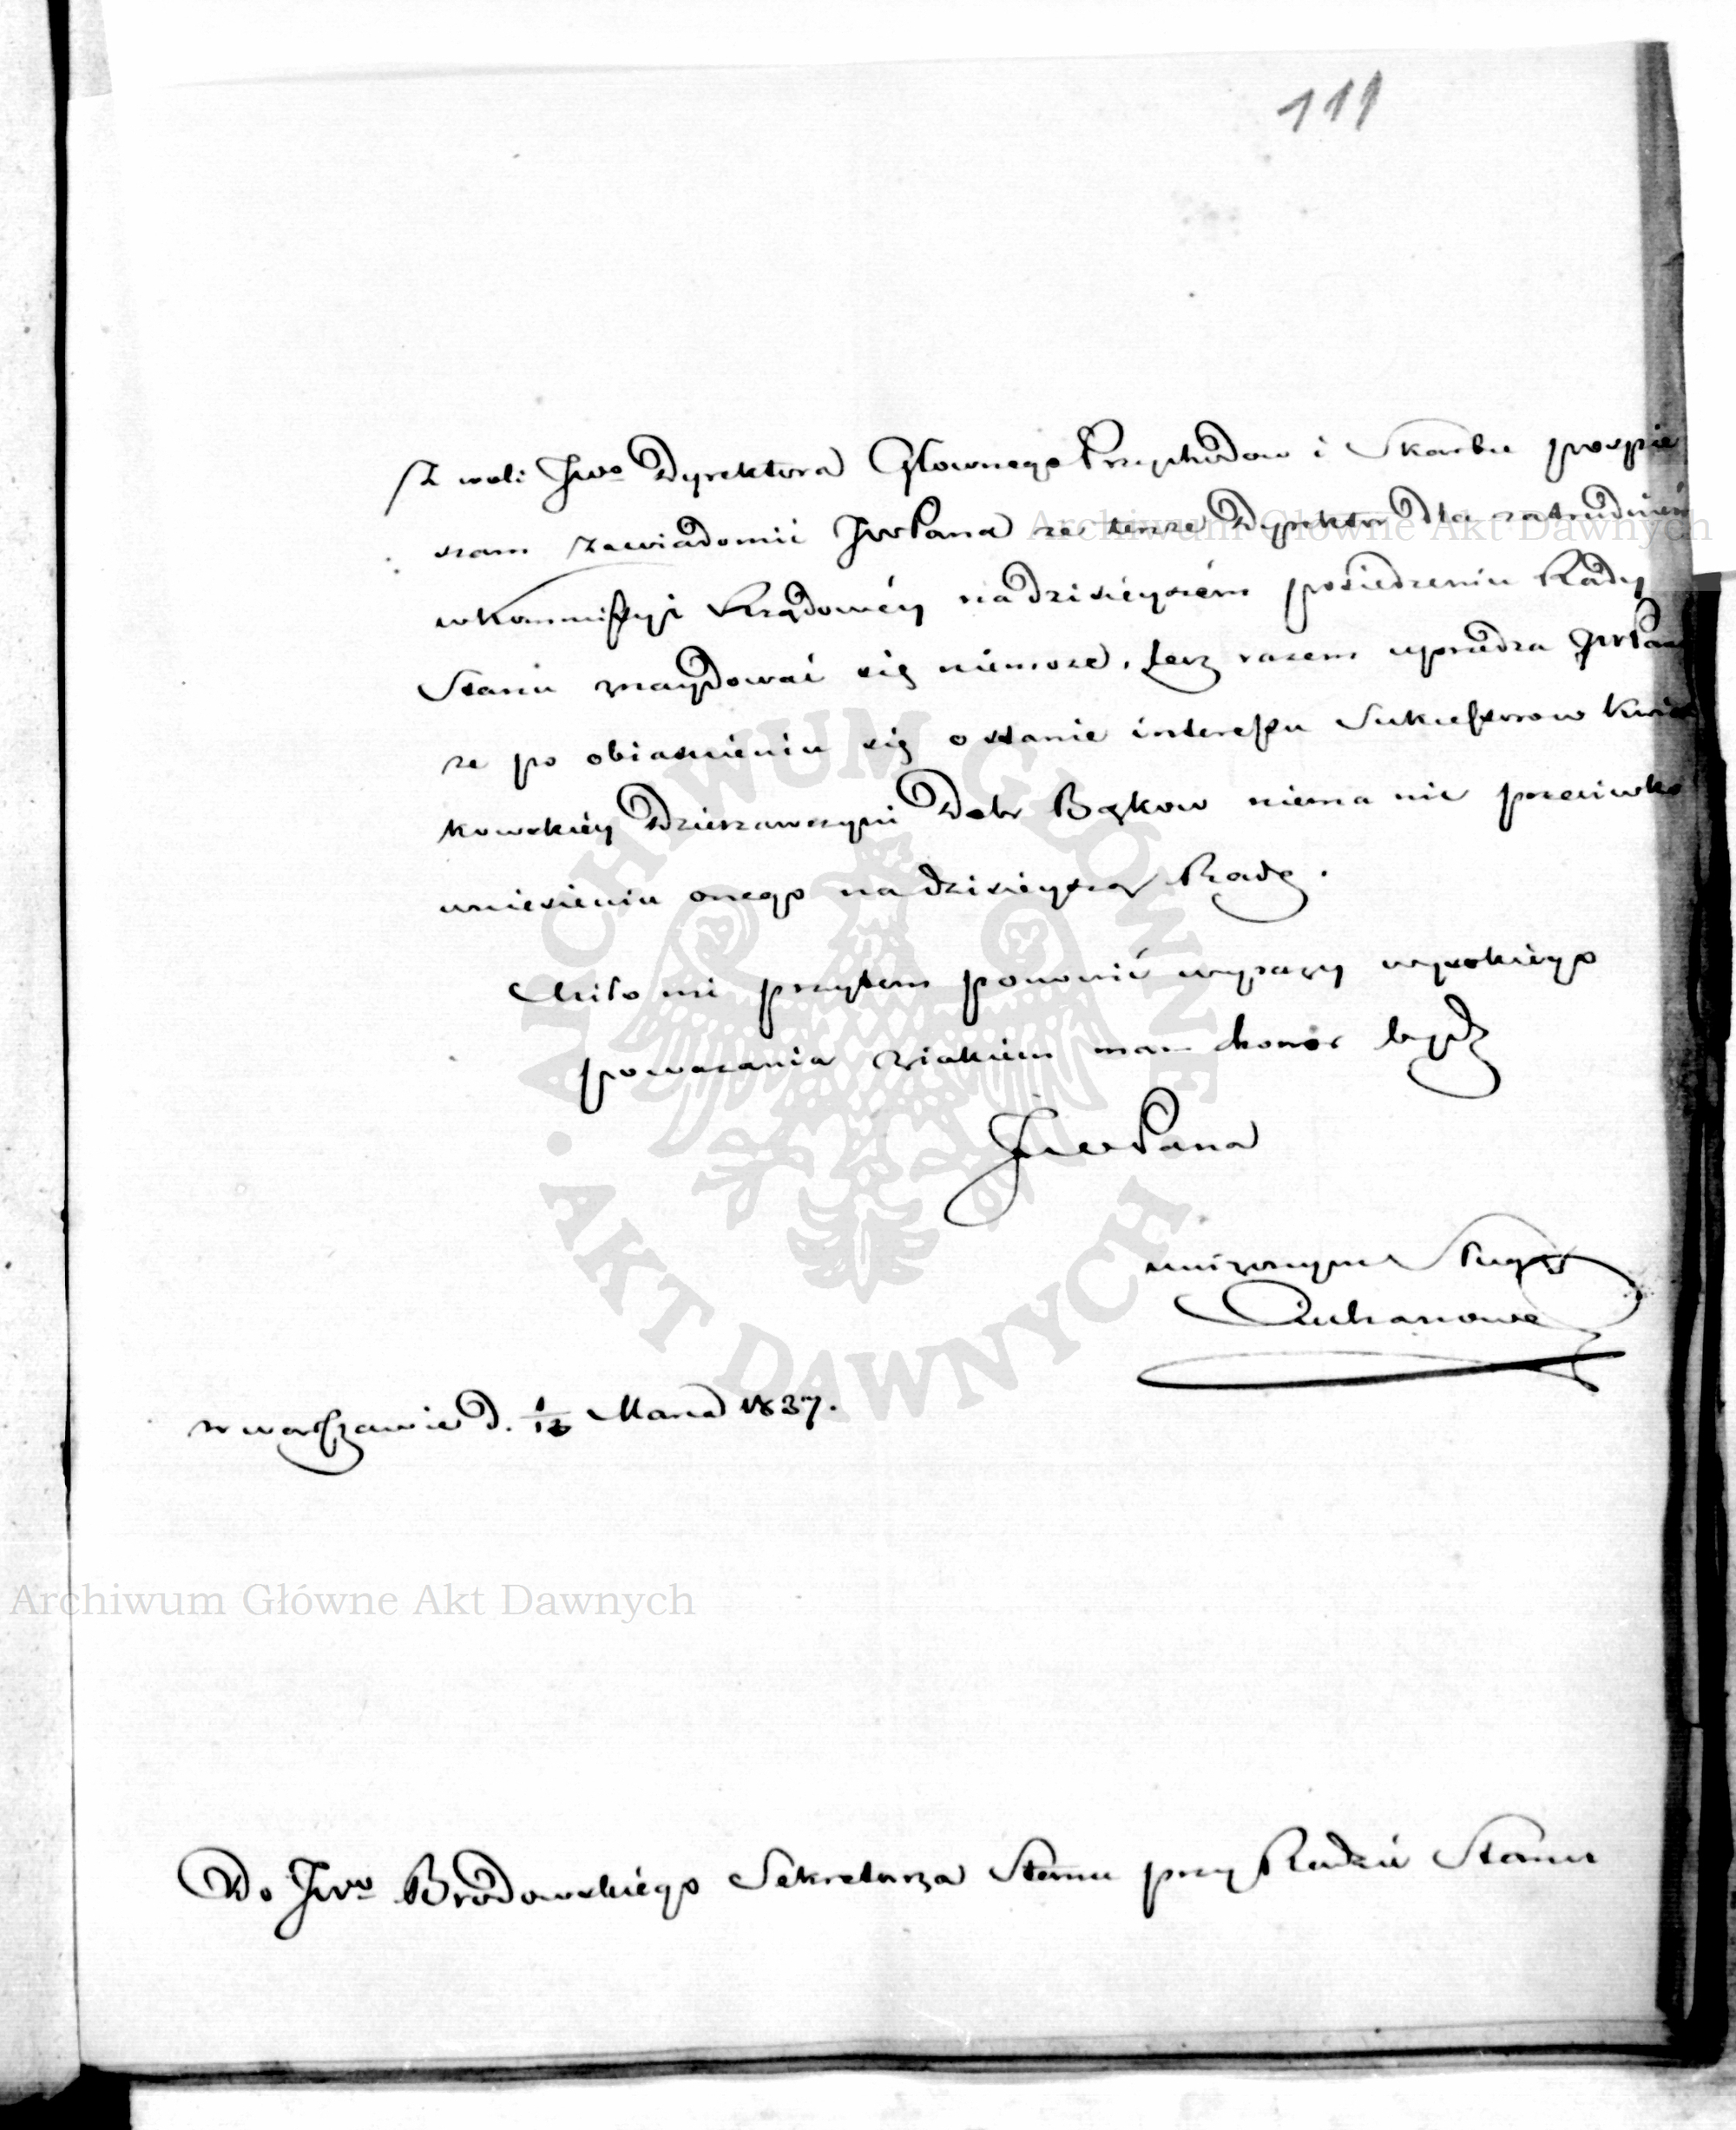 111
Z woli JWo Dyrektora Głownego Przychodow i Skarbu pospie
szam zawiadomić JWPana ze tenze Dyrektor dla zatrudnień
w Kommissyi Rządowéy na dzisieyszém posiedzeniu Rady
Stanu znaydować się niemoze, lecz razem uprzedza JWPana
ze po obiasnieniu się o stanie interessu Sukcessorow
kowskiéy Dzierzawczyni Dobr Bąkow niema nic przeciwko
wniesieniu onego na dzisieyszą Radę.
Miło mi przytem ponowić wyrazy wysokiego
powazania z iakiem mam honor bydź
JWPana
unizonym Sługą
w Warszawie d. 1/13 Marca 1837.
Do JWo Brodowskiégo Sekretarza Stanu przy Radzie Stanu
Archiwum Główne Akt Dawnych
Archiwum Główne Akt Dawnych
ARCHIWUM GŁÓWNE • AKT DAWNYCH •